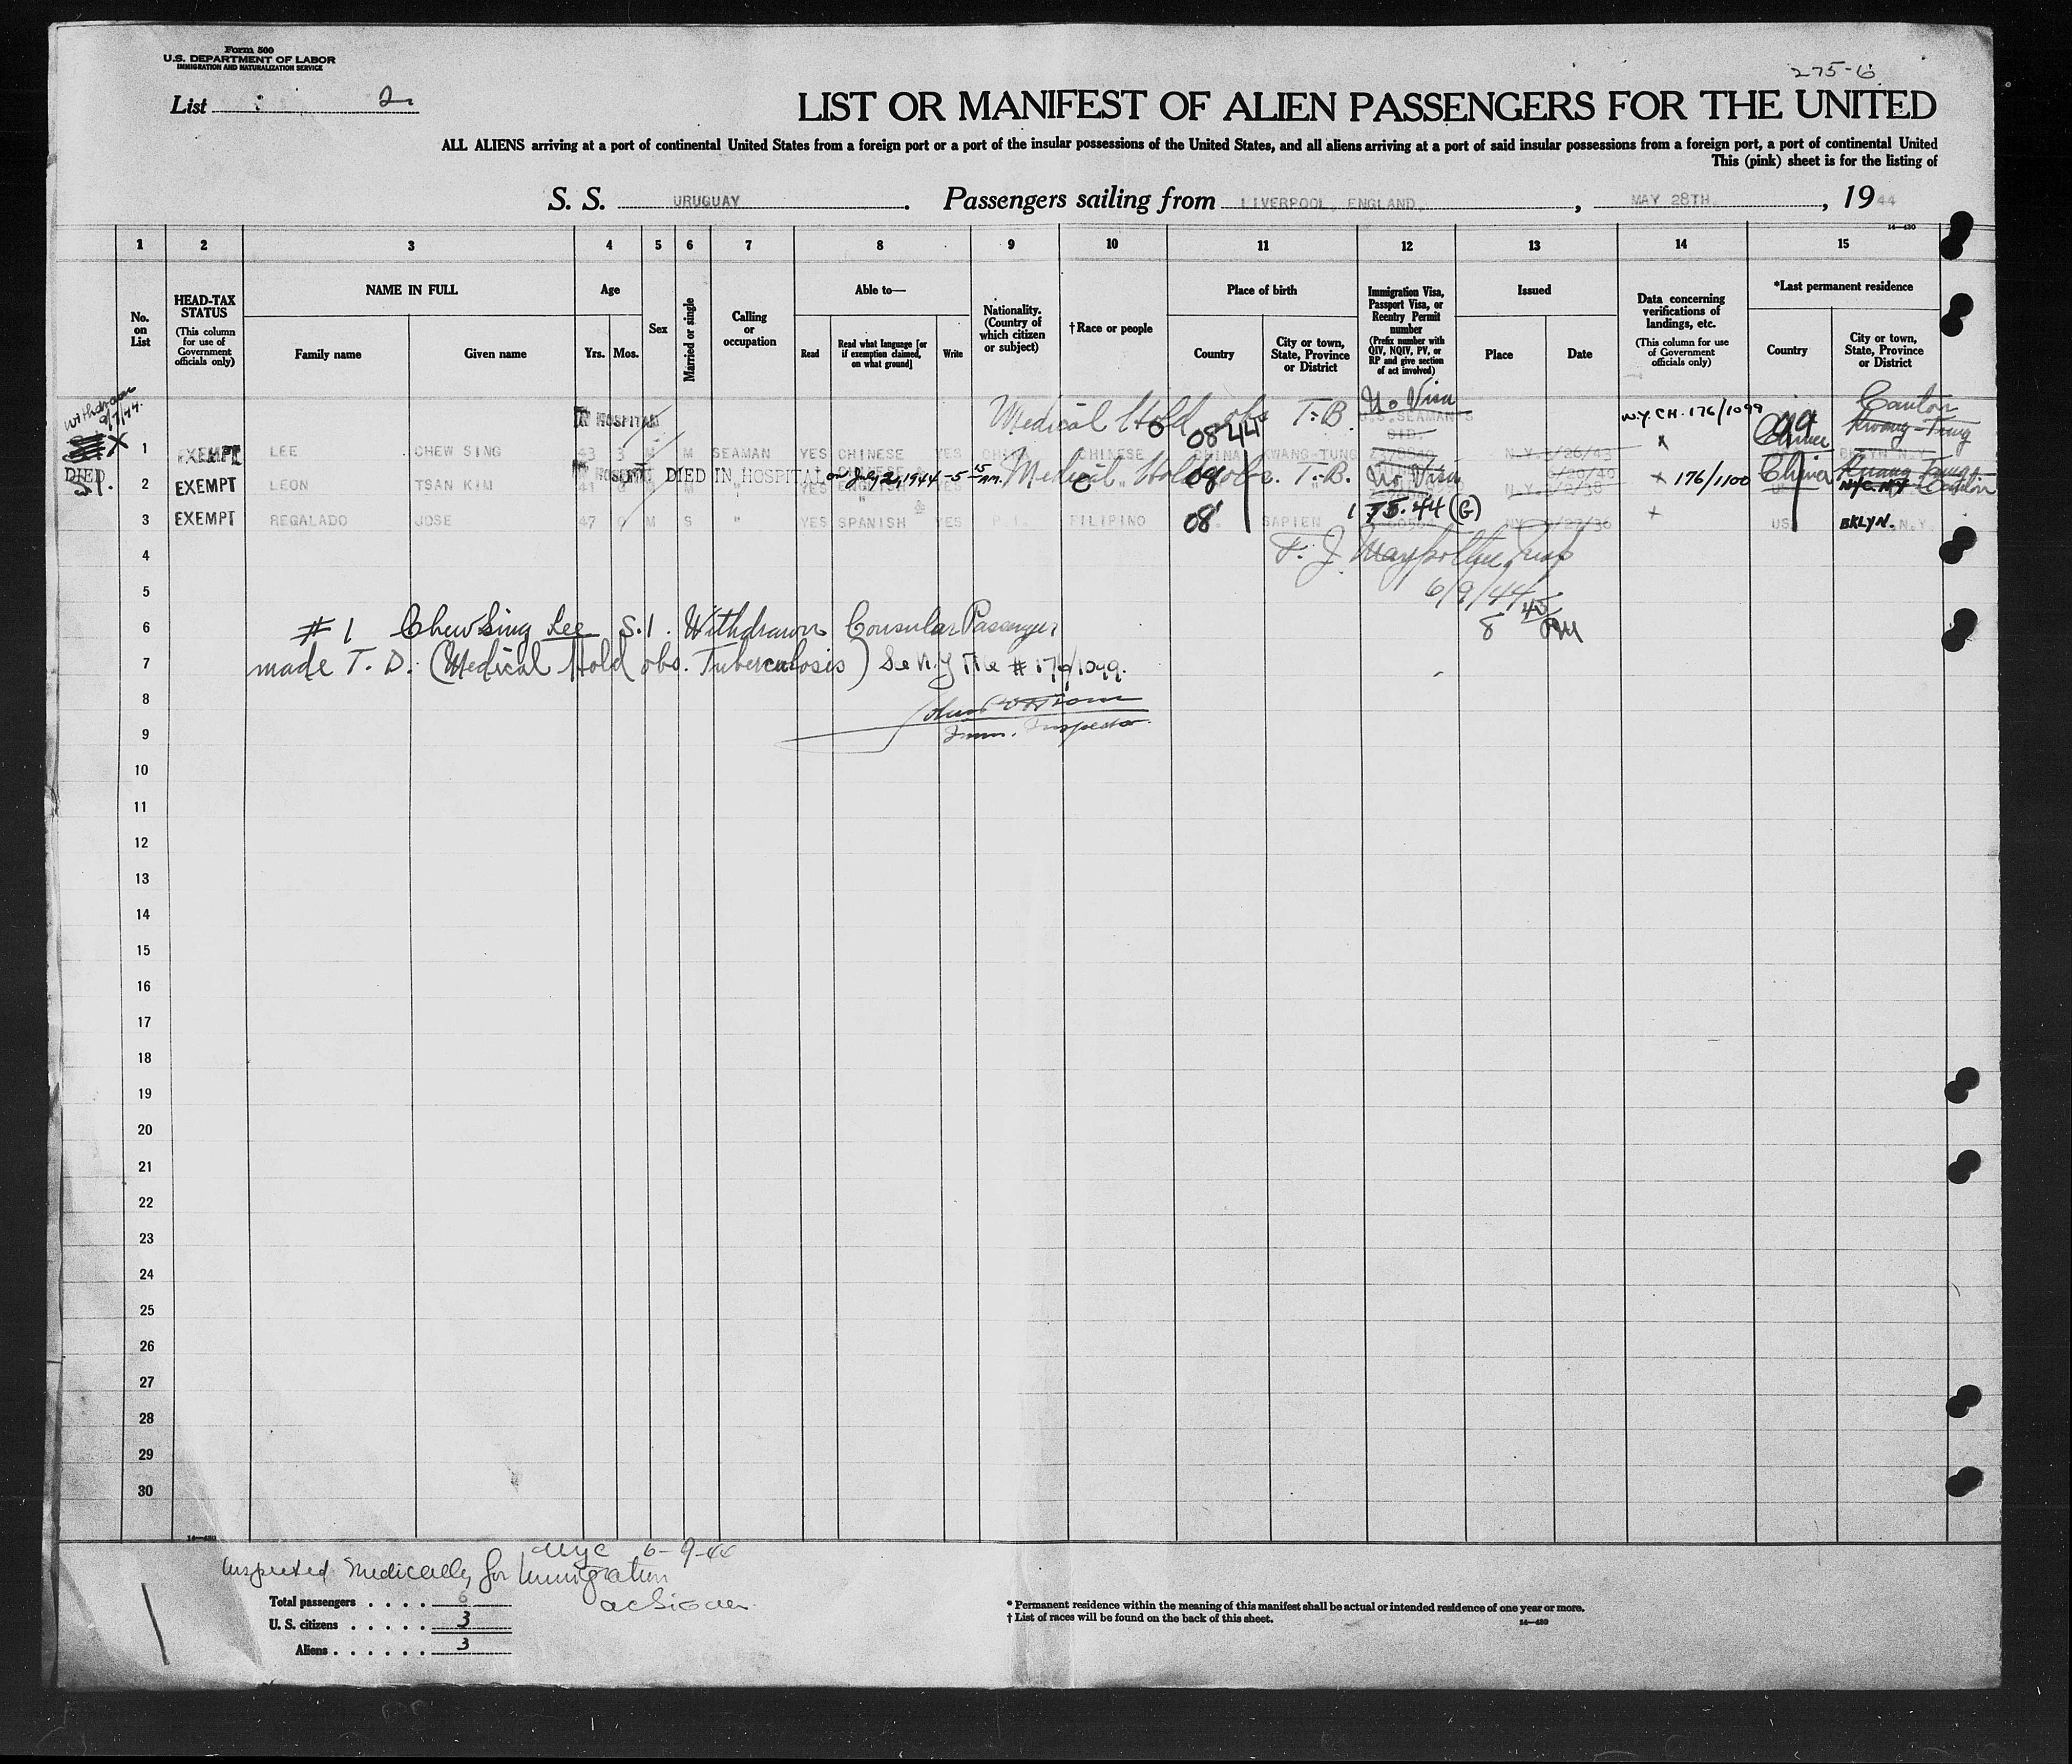 Form 500
U.S. DEPARTMENT OF LABOR
IMMIGRATION AND NATURALIZATION SERVICE
275-6
List 2
LIST OR MANIFEST OF ALIEN PASSENGERS FOR THE UNITED
ALL ALIENS arriving at a port of continental United States from a foreign port or a port of the insular possessions of the United States, and all aliens arriving at a port of said insular possessions from a foreign port, a port of continental United
This (pink) sheet is for the listing of
S. S. URUGUAY. Passengers sailing from LIVERPOOL, ENGLAND, MAY 28TH, 1944
14—480
1 2 3 4 5 6 7 8 9 10 11 12 13 14 15
No. on List
HEAD-TAX STATUS (This column for use of Government officials only)
NAME IN FULL
Family name Given name
Age
Yrs. Mos.
Sex
Married or single
Calling or occupation
Able to—
Read
Read what language [or if exemption claimed, on what ground]
Write
Nationality. (Country of which citizen or subject)
†Race or people
Place of birth
Country
City or town, State, Province or District
Immigration Visa, Passport Visa, or Reentry Permit number (Prefix number with QIV, NQIV, PV, or RP and give section of act involved)
Issued
Place Date
Data concerning verifications of landings, etc. (This column for use of Government officials only)
*Last permanent residence
Country
City or town, State, Province or District
Withdrawn 9/7/44. IN HOSPITAL Medical Hold obs T.B. No Visa N.Y. CH. 176/1099 099 China Canton Kwang-Tung
0844
X 1 EXEMPT LEE CHEW SING 43 3 M M SEAMAN YES CHINESE YES CHINA CHINESE CHINA KWANG-TUNG N.Y. 5/26/43 x
DIED IN HOSPITAL DIED IN HOSPITAL on July 2, 1944 - 5 15 AM. Medical Hold obs. T.B. No Visa x 176/1100 China
S.I. 2 EXEMPT LEON TSAN KIM 41 M " YES ENGLISH YES 08 N.Y. N.Y.C. N.Y. Canton
3 EXEMPT REGALADO JOSE 47 0 M S " YES SPANISH YES P.I. FILIPINO 08 SAPIEN 175.44 (G) NY /27/36 + US BKLYN. N.Y.
4
5 6/9/44
6 #1 Chew Sing Lee S.I. Withdrawn Consular Passenger 8 45 PM
7 made T.D. (Medical Hold obs. Tuberculosis) See N.Y. File # 176/1099.
8
9 Imm. Inspector
10
11
12
13
14
15
16
17
18
19
20
21
22
23
24
25
26
27
28
29
30
14—480
NYC 6-9-44
Inspected Medically for Immigration
Total passengers . . . . 6
U. S. citizens . . . . . 3
Aliens . . . . . . 3
* Permanent residence within the meaning of this manifest shall be actual or intended residence of one year or more.
† List of races will be found on the back of this sheet.
14—480